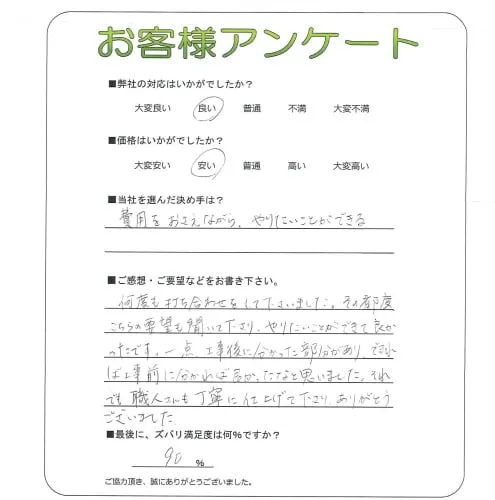 お客様アンケート
■弊社の対応はいかがでしたか？
大変良い 良い 普通 不満 大変不満
■価格はいかがでしたか？
大変安い 安い 普通 高い 大変高い
■当社を選んだ決め手は？
費用をおさえながら、やりたいことができる
■ご感想・ご要望などをお書き下さい。
何度も打ち合わせをして下さいました。その都度
こちらの要望も聞いて下さり、やりたいことができて良か
ったです。一点、工事後に分かった部分があり、できれ
ば工事前に分かれば良かったなと思いました。それ
でも職人さんも丁寧に仕上げて下さり、ありがとう
ございました
■最後に、ズバリ満足度は何%ですか？
90 %
ご協力頂き、誠にありがとうございました。